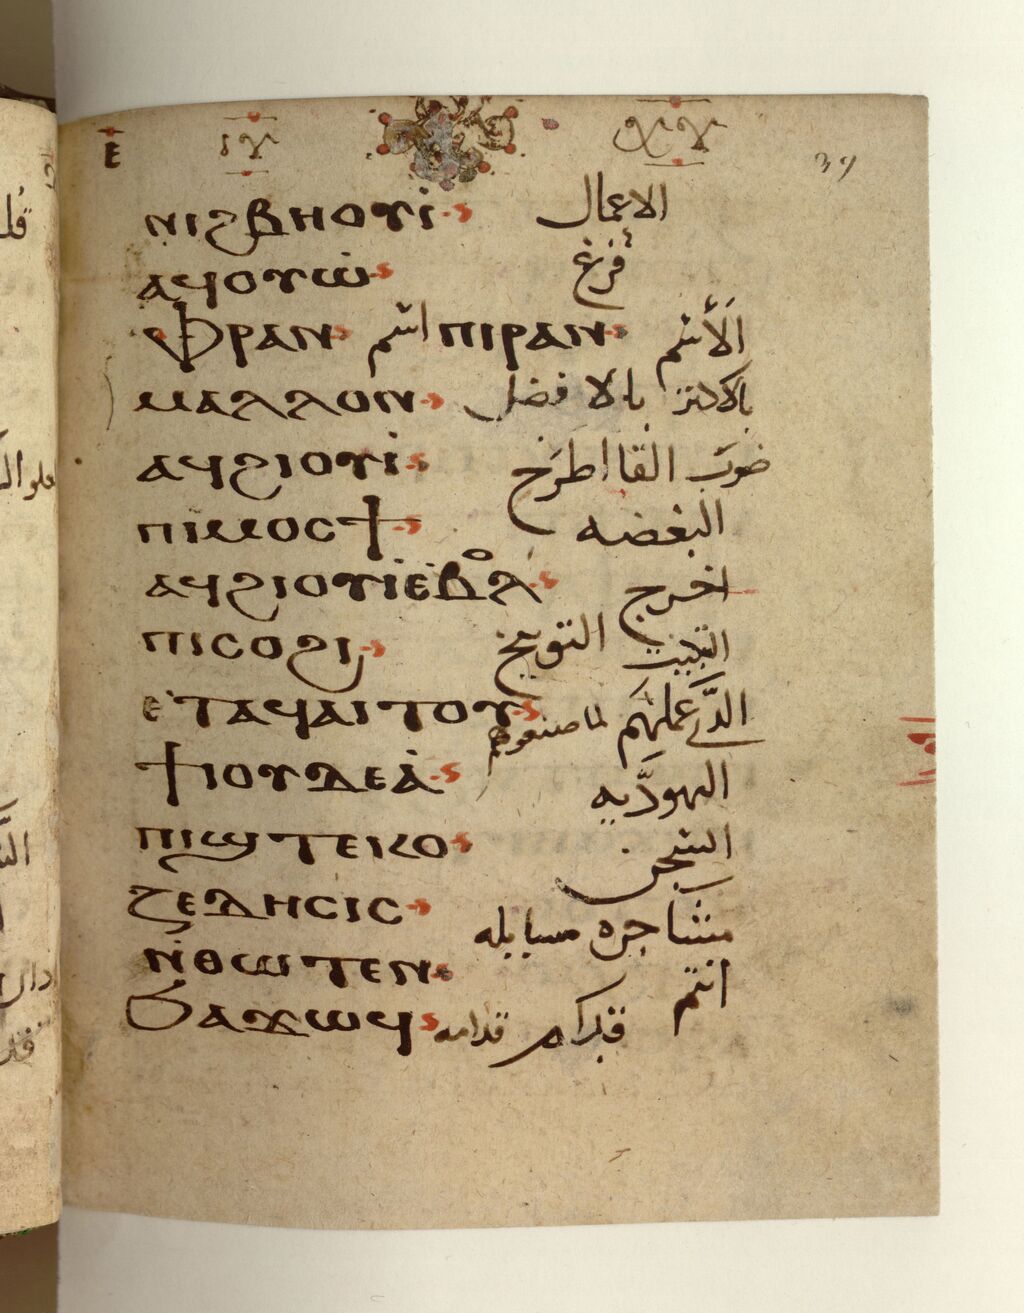 ⲉ ⲓⲭ ⲭⲭ 39
ⲛⲓϩⲃⲏⲟⲩⲓ̇ الاعمال
ⲁϥⲟⲩⲱ̇ فرغ
ⲫⲣⲁⲛ اسم ⲡⲓⲣⲁⲛ الأسم
ⲙⲁⲗⲗⲟⲛ بالافضل بالاكثر
ⲁϥϩⲓⲟⲩⲓ̇ ضرب القا اطرح
ⲡⲓⲙⲟⲥϯ البغضه
ⲁϥϩⲓⲟⲩⲓ̇ⲉ̇ⲃⲟⲗ اخرج
ⲡⲓⲥⲟϩⲓ التوبيخ التبكيت
ⲉ̇ⲧⲁϥⲁⲓⲧⲟⲩ الدي عملهم لما صنعوهم
ϯⲓⲟⲩⲇⲉⲁ̇ اليهوديه
ⲡⲓϣⲧⲉⲕⲟ السجن
ⲍⲉⲇⲏⲥⲓⲥ مشاجره مسايله
ⲛ̇ⲑⲱⲧⲉⲛ انتم
ϧⲁϫⲱϥ قدام قدامه